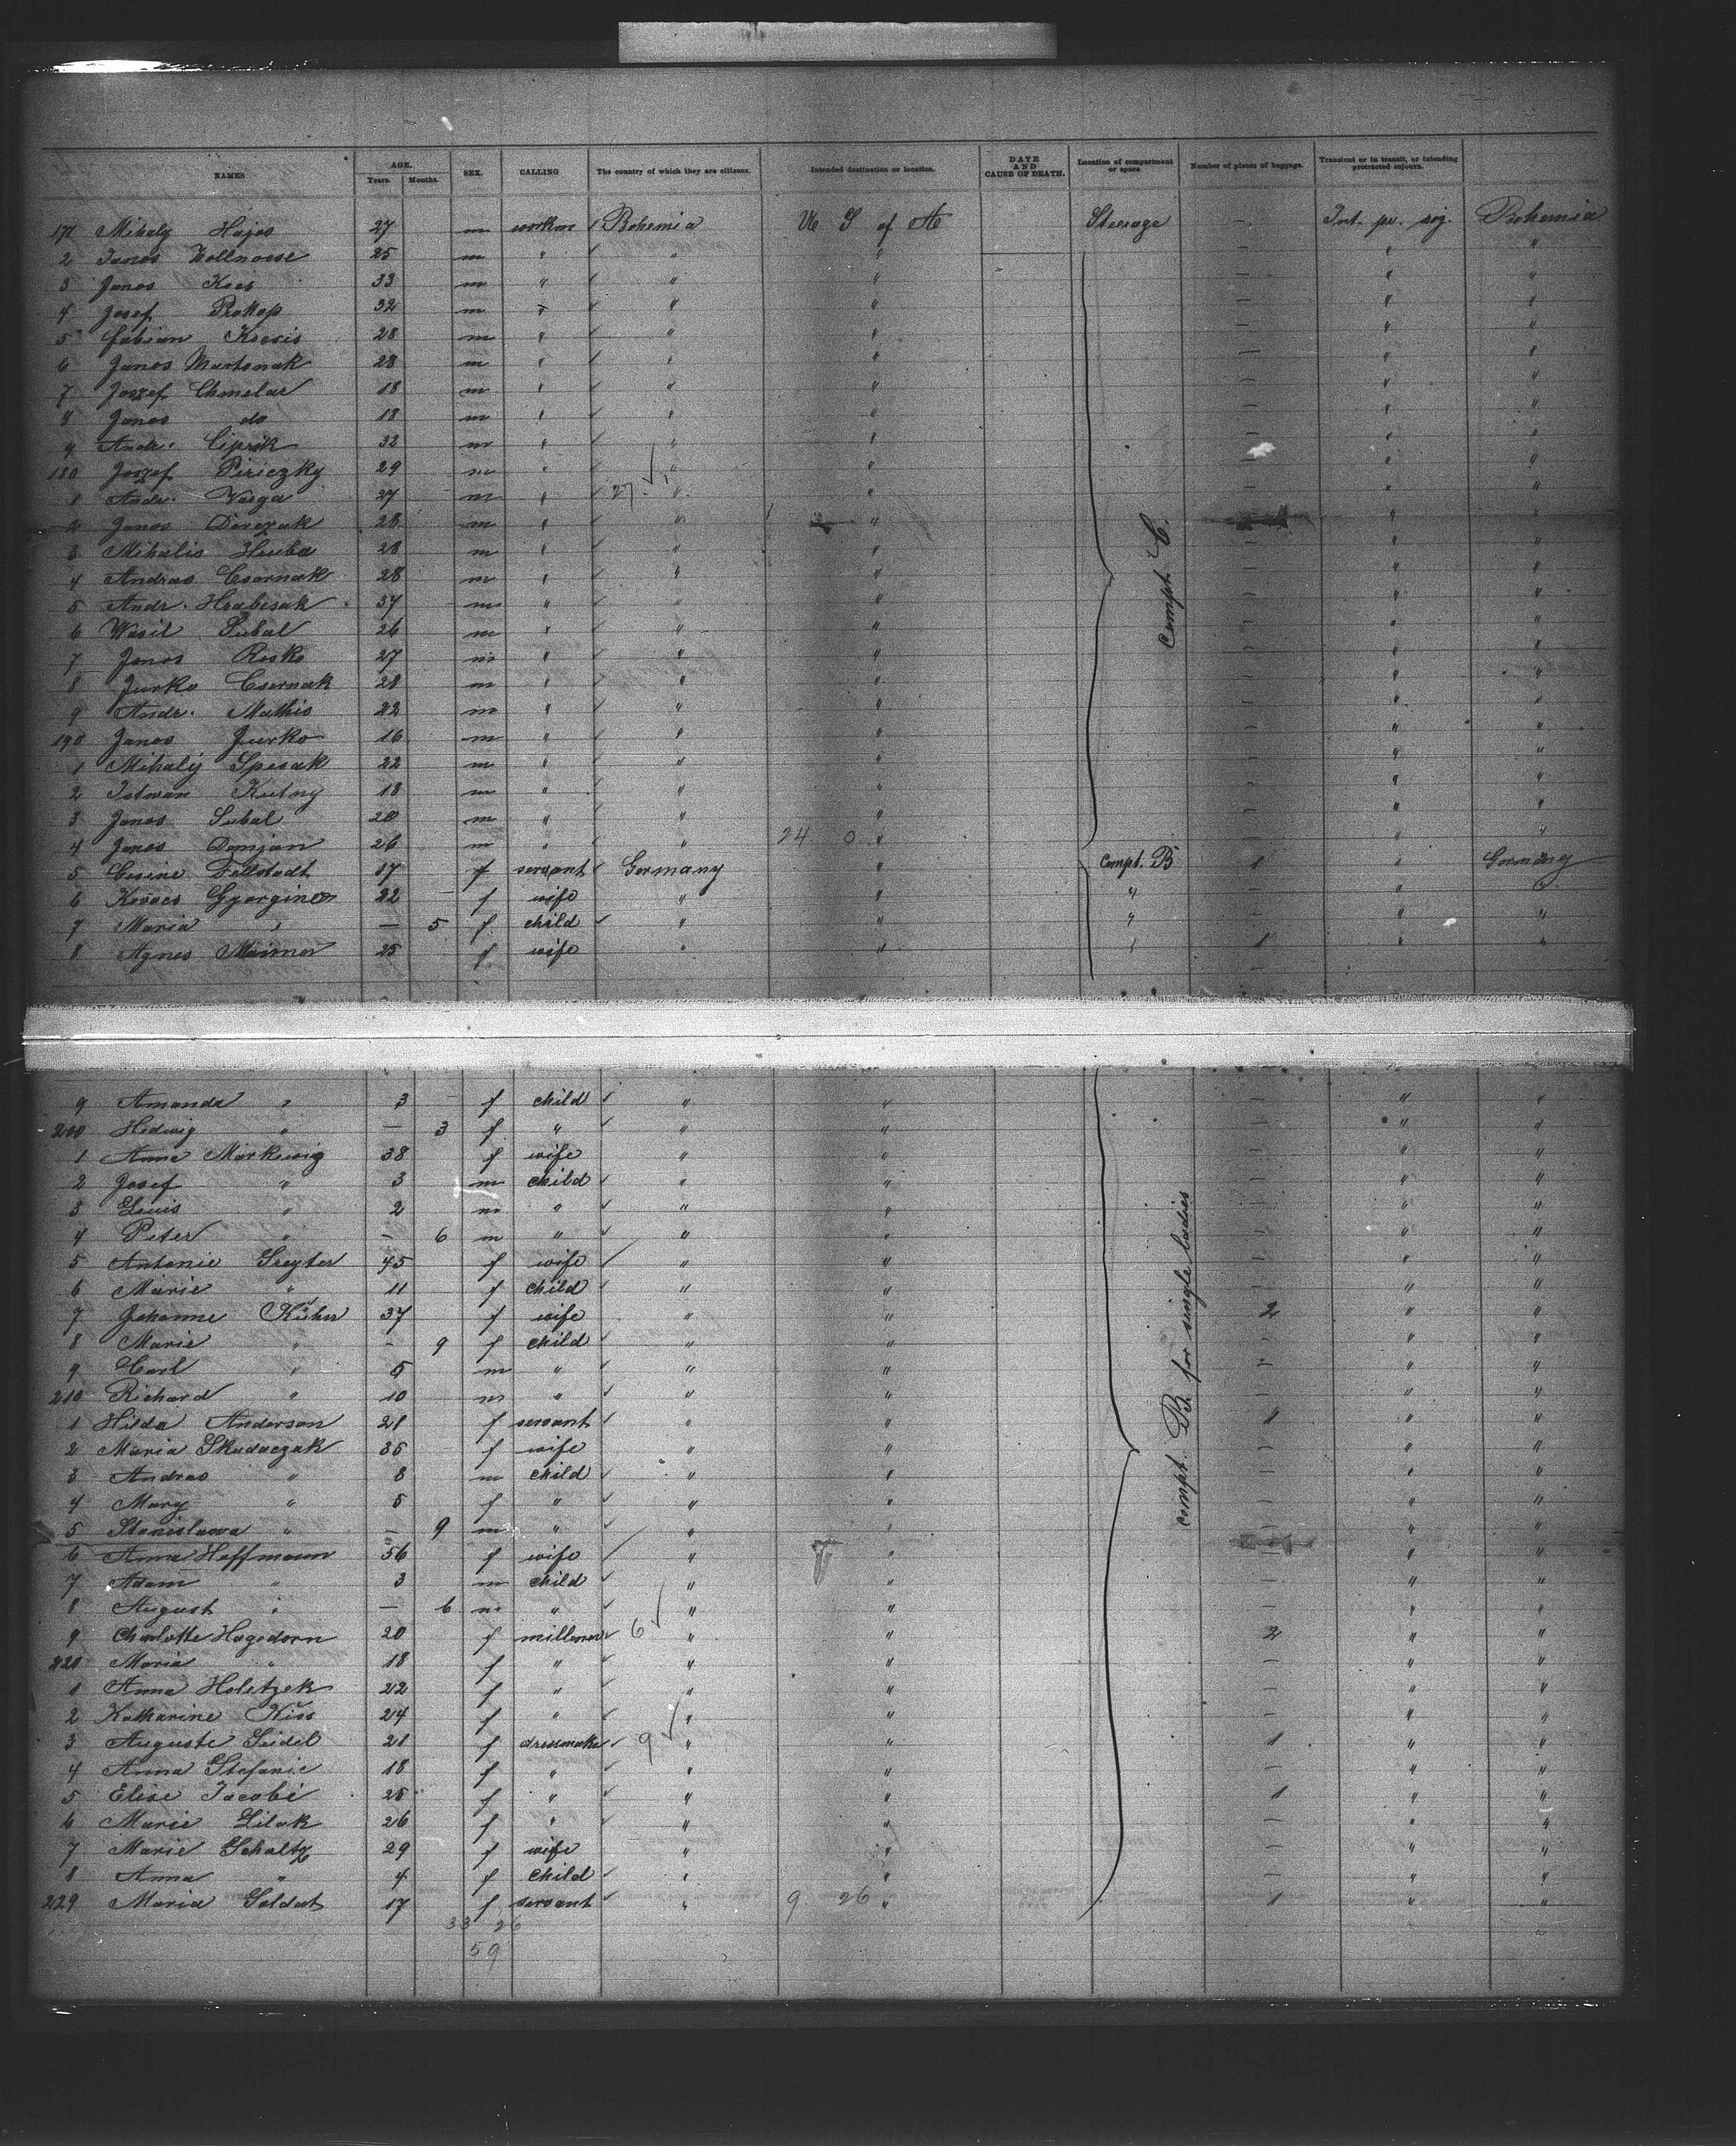 NAMES AGE. Years. Months. SEX. CALLING The country of which they are citizens. Intended destination or location. DATE AND CAUSE OF DEATH. Location of compartment or space. Number of pieces of baggage. Transient or in transit, or intending protracted sojourn.
171 Mihaly Hajos 27 m workm Bohemia U S of A Steerage - Int. pr. soj. Bohemia
2 Janos 25 m " " " - " "
3 Janos Koos 33 m " " " - " "
4 Josef Prokop 32 m " " " - " "
5 Fabian Kocsis 28 m " " " - " "
6 Janos Martonak 28 m " " " - " "
7 Joszef Chmelar 18 m " " " - " "
8 Janos do 18 m " " " - " "
9 Andr. Ciprik 32 m " " " - " "
180 Joszef Piriczky 29 m " " " - " "
1 Andr. Varga 27 m " 27 " " - " "
2 Janos 28 m " " " - " "
3 Mihalis Huba 28 m " " " - " "
4 Andras Csornak 28 m " " " - " "
5 Andr. Hrabcsak 37 m " " " - " "
6 Wasil Subal 26 m " " " - " "
7 Janos Rosko 27 m " " " - " "
8 Jurko Csernak 28 m " " " - " "
9 Andr. Mathis 22 m " " " - " "
190 Janos Jurko 16 m " " " - " "
1 Mihaly Spesak 22 m " " " - " "
2 Istwan Kutny 18 m " " " - " "
3 Janos Subal 20 m " " " - " "
4 Janos Damjan 26 m " " 24 0 " - " "
compt. C.
5 Fellstadt 17 f servant Germany " Compt. B 1 " Germany
6 Kovacs 22 - f wife " " " - " "
7 Maria " - 5 f child " " " - " "
8 Agnes 25 f wife " " " 1 " "
9 Amanda " 3 - f child " " - " "
200 Hedwig " - 3 f " " " - " "
1 Anna Markewig 38 f wife " " - " "
2 Josef " 3 m child " " - " "
3 Louis " 2 m " " " - " "
4 Peter " - 6 m " " " - " "
5 Antonie Greyter 45 f wife " " - " "
6 Marie " 11 f child " " - " "
7 Johanne Kühn 37 f wife " " 2 " "
8 Marie " - 9 f child " " - " "
9 Carl " 5 m " " " - " "
210 Richard " 10 m " " " - " "
1 Hilda Anderson 21 f servant " " 1 " "
2 Maria Skudaczak 35 f wife " " - " "
3 Andras " 8 m child " " - " "
4 Mary " 5 f " " " - " "
5 Stanislawa " - 9 m " " " - " "
6 Anna Hoffmann 56 f wife " " - " "
7 Adam " 3 m child " " - " "
8 August " - 6 m " " " - " "
9 Charlotte Hagedorn 20 f milliner 6 " " 2 " "
220 Maria " 18 f " " " - " "
1 Anna Holetzek 22 f " " " - " "
2 Katharine Kiss 24 f " " " - " "
3 Auguste Seidel 21 f dressmake 9 " " 1 " "
4 Anna Stefanie 18 f " " " - " "
5 Elise Jacobi 25 f " " " 1 " "
6 Marie Lilak 26 f " " " - " "
7 Marie Schultz 29 f wife " " - " "
8 Anna " 4 f child " " - " "
229 Maria Soldat 17 f servant " 9 26 " 1 " "
compt. B. for single ladies
33 26
59